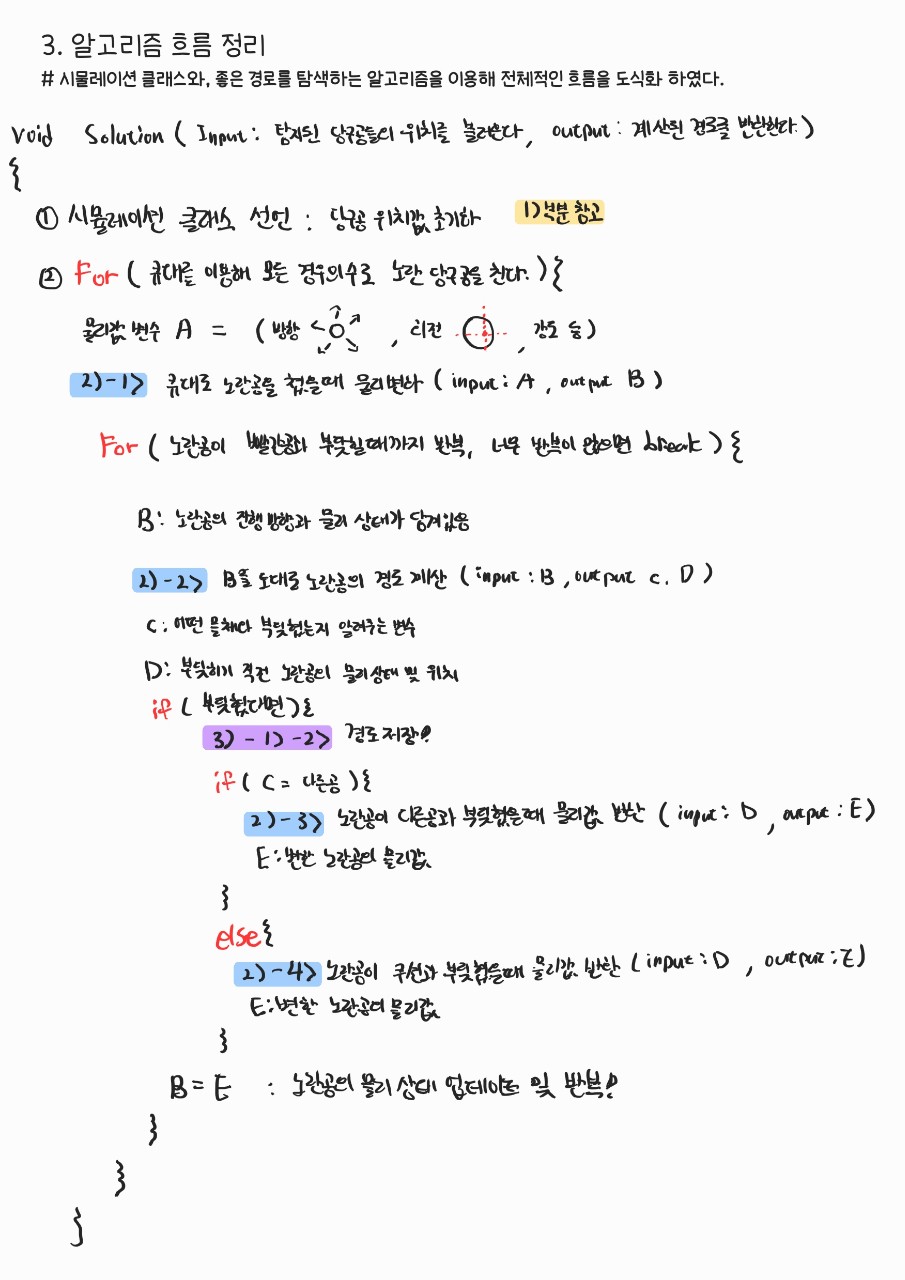 3. 알고리즘 흐름 정리
# 시뮬레이션 클래스와, 좋은 경로를 탐색하는 알고리즘을 이용해 전체적인 흐름을 도식화 하였다.
void Solution ( Input : 탐지된 당구공들의 위치를 불러온다, output : 계산된 경로를 반환한다.)
{
① 시뮬레이션 클래스 선언 : 당구공 위치값 초기화 1)부분 참고
② For ( 큐대를 이용해 모든 경우의수로 노란 당구공을 친다. ) {
물리값 변수 A = ( 방향 , 회전 , 강도 등 )
2)-1> 큐대로 노란공을 쳤을때 물리변화 ( input : A , output B )
For ( 노란공이 빨간공과 부딪힐때까지 반복, 너무 반복이 많으면 break ) {
B : 노란공의 진행방향과 물리 상태가 담겨있음
2)-2> B를 토대로 노란공의 경로 계산 ( input : B , output C, D )
C : 어떤 물체와 부딪혔는지 알려주는 변수
D : 부딪히기 직전 노란공의 물리상태 및 위치
if ( 부딪혔다면 ) {
3)-1)-2> 경로저장!
if ( C = 다른공 ) {
2)-3> 노란공이 다른공과 부딪혔을때 물리값 반환 ( input : D , output : E )
E : 변한 노란공의 물리값
}
else {
2)-4> 노란공이 쿠션과 부딪혔을때 물리값 반환 ( input : D , output : E )
E : 변한 노란공의 물리값
}
B = E : 노란공의 물리 상태 업데이트 및 반복!
}
}
}